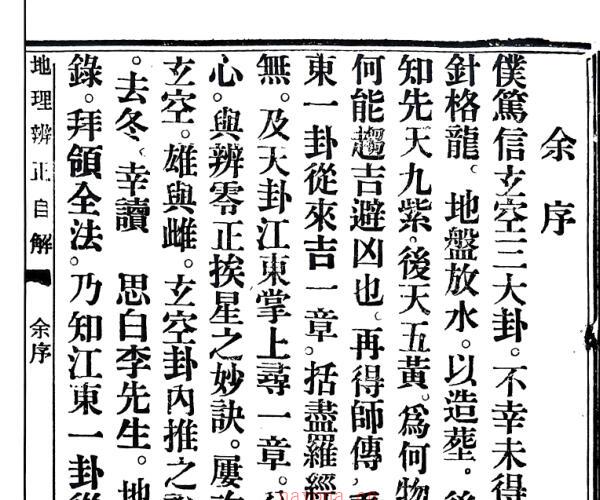 余序
僕篤信玄空三大卦。不幸未得
針格龍。地盤放水。以造葬。後
知先天九紫。後天五黃。爲何物
何能趨吉避凶也。再得師傳。
東一卦從來吉一章。括盡羅經
無。及天卦江東掌上尋一章。
心。與辨零正挨星之妙訣。屢
玄空。雄與雌。玄空卦內推之
。去冬、幸讀 思白李先生。地
錄。拜領全法。乃知江東一卦從
地理辨正自解 余序